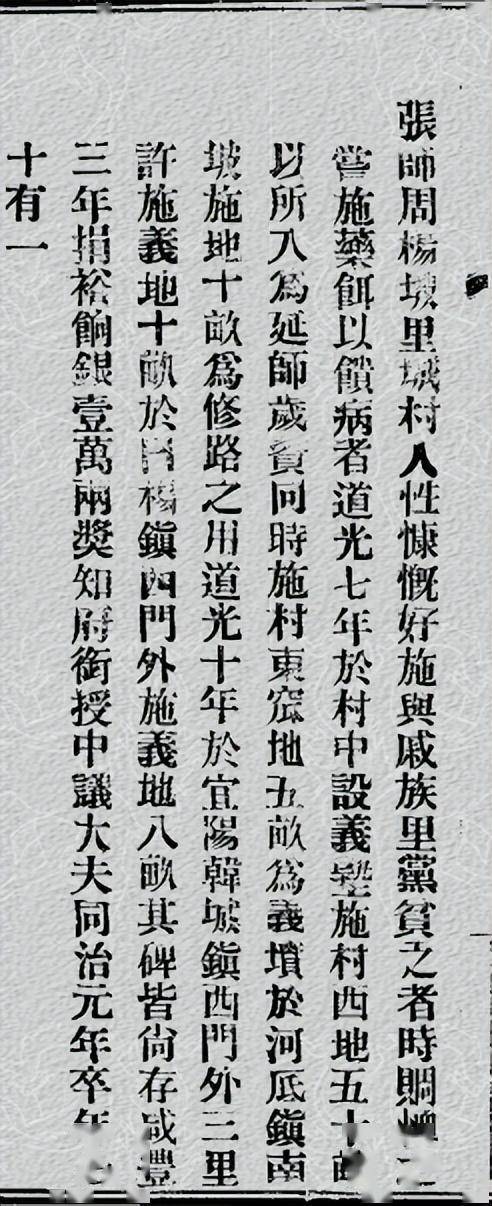 張師周楊坡里城村人性慷慨好施與戚族里黨貧乏者時賙恤之
嘗施藥餌以饋病者道光七年於村中設義塾施村西地五十畝
以所入為延師歲資同時施村東窊地五畝為義墳於河底鎮南
坡施地十畝為修路之用道光十年於宜陽韓城鎮西門外三里
許施義地十畝於白楊鎮西門外施義地八畝其碑皆尙存咸豐
三年捐餉銀壹萬兩獎知府銜授中議大夫同治元年卒年
十有一